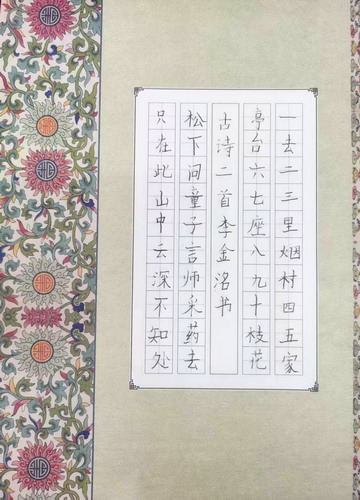 一去二三里烟村四五家
亭台六七座八九十枝花
古诗二首李金洺书
松下问童子言师采药去
只在此山中云深不知处